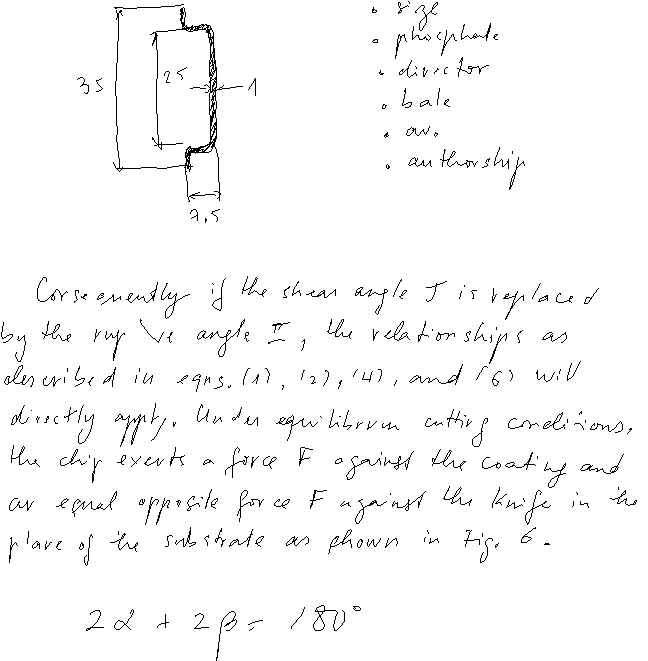 35
25
1
7.5
• size
• phosphate
• director
• bale
• av.
• authorship
Consequently if the shear angle J is replaced
by the rup ve angle II, the relationships as
described in eqns. (1), (2), (4), and (6) will
directly apply. Under equilibrium cutting conditions,
the chip exerts a force F against the coating and
an equal opposite force F against the knife in the
plane of the substrate as shown in Fig. 6.
2α + 2β = 180°